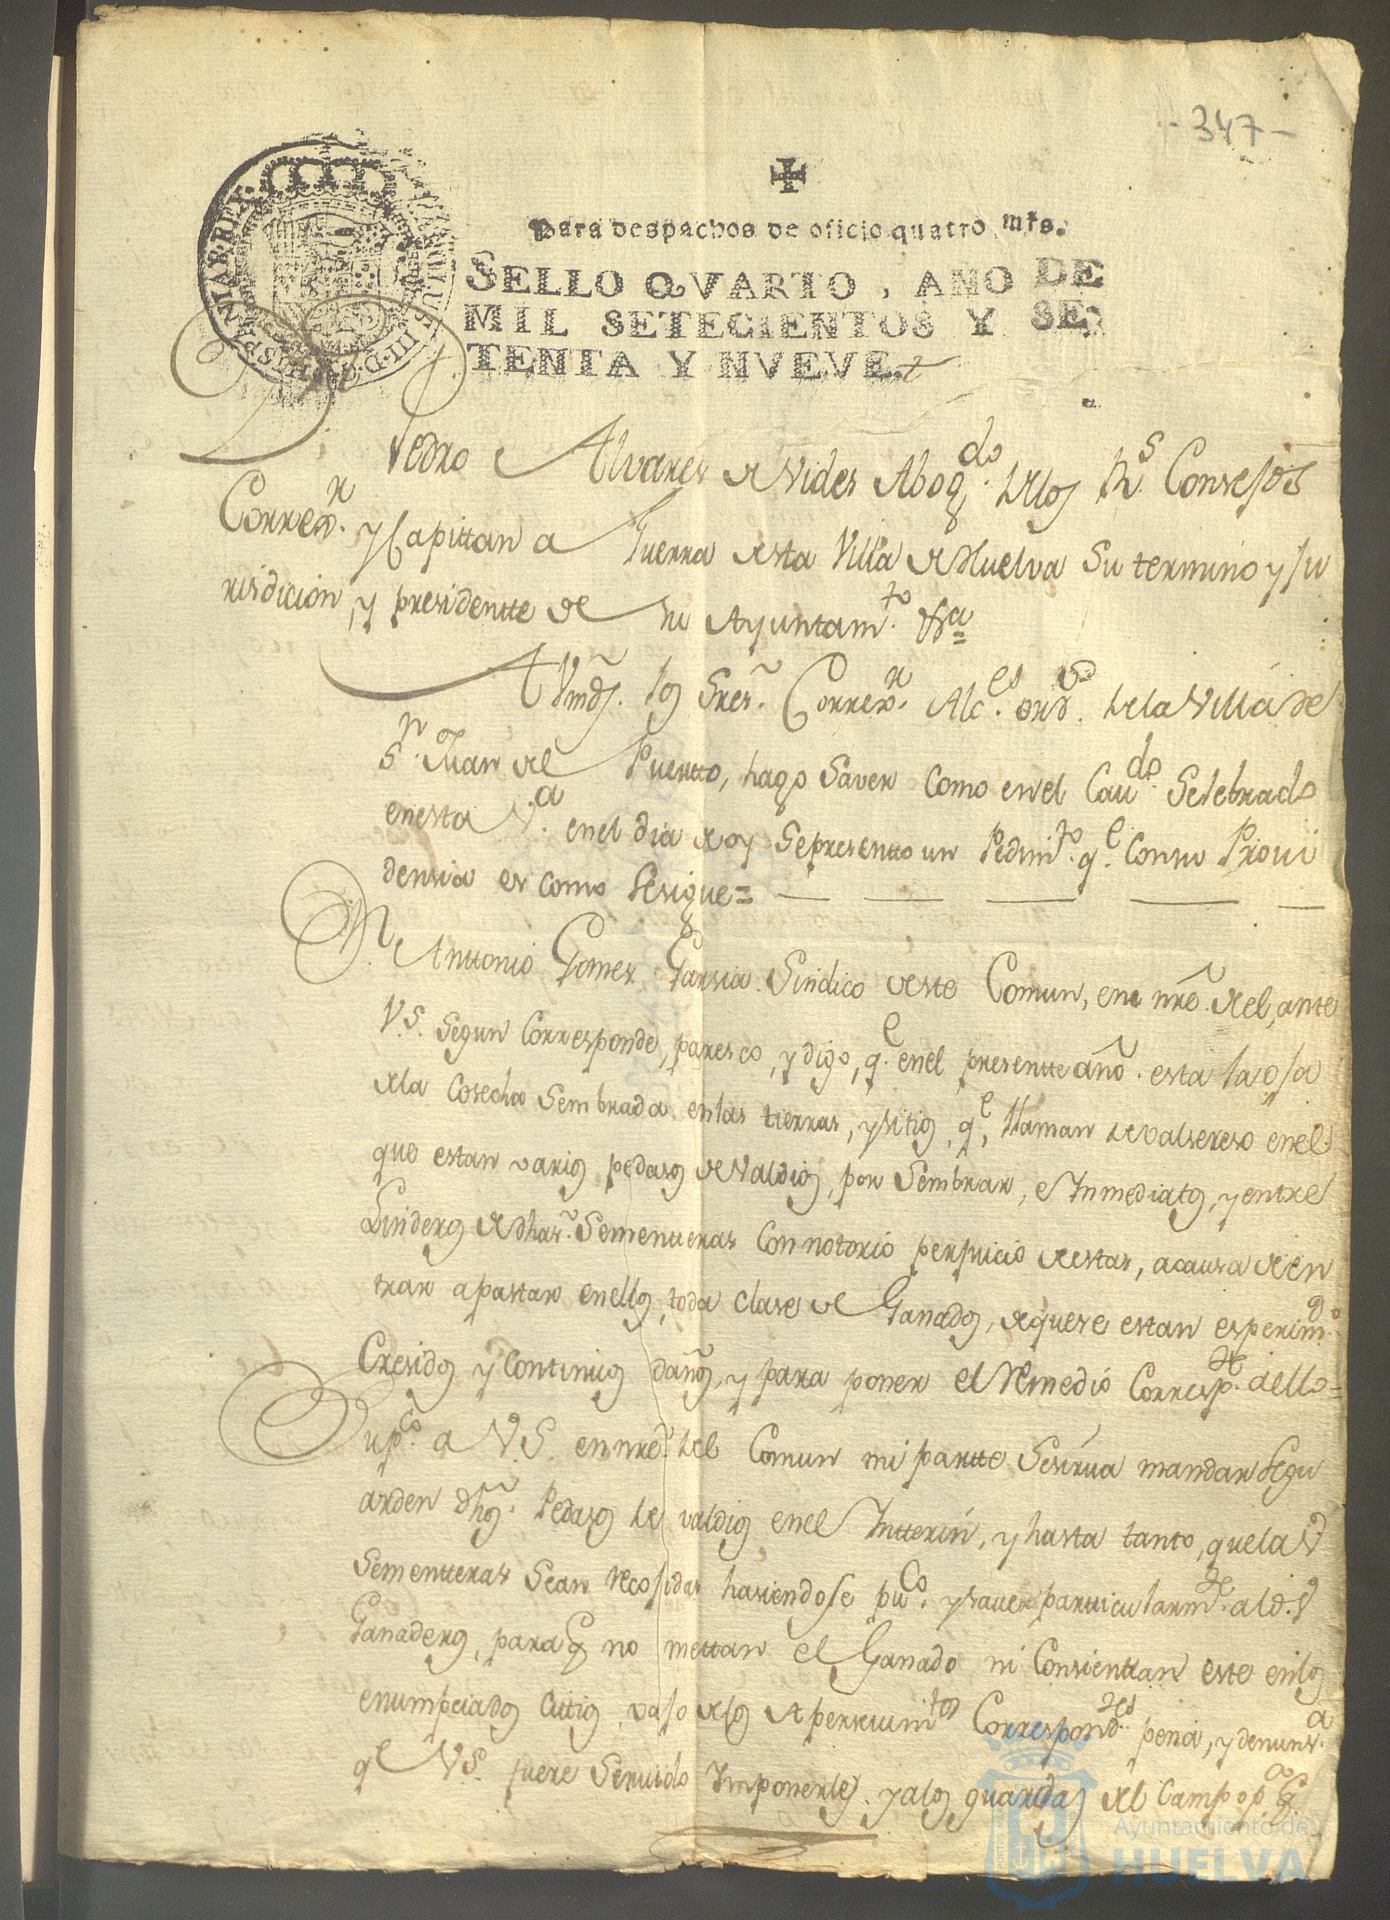 -347-
CAROLUS III D.G. HISPANIAR. REX.
Para despachos de oficio quatro mrs.
SELLO QVARTO, AÑO DE
MIL SETECIENTOS Y SE-
TENTA Y NVEVE.
Pedro Alvarez de Vides Abogdo. de los Rs. Consejos
Correxr. y Capittan a Guerra desta Villa de Huelva Su termino y Ju
risdicion, y presidentte de su Ayuntamto. &a=
A Vmds. los Sres. Correxr. Alces. ordos. de la Villa de
Sn. Juan del Puertto, hago Saver como en el Cavdo. Selebrado
en esta Va. en el dia de oy Se presentto un Pedimto. qe. Con su Provi
densia es como Se sigue=
Dn. Anttonio Gomez Garsia Sindico deste Comun, en nre. del, ante
V.S. Segun Corresponde, paresco, y digo, qe. en el presentte año esta la oja
de la Cosecha Sembrada en las tierras, y sitios, qe. llaman de valsereso en el
que estan varios pedasos de Valdios, por Sembrar, e Inmediatos, y entre
Linderos de dhas. Sementteras Con notorio perjuicio de estas, a causa de en
trar a pastar en ellos, toda clase de Ganados, de que se estan esperimdo.
Cresidos y Continuos daños, y para poner el Remedio Correspte. a ello=
Supco. a V.S. en nre. del Comun mi partte Se sirva mandar Se gu
arden dhos. Pedasos de valdios en el Intterin, y hasta tanto, que las
Sementteras Sean recojidas hasiendose puco. y saver particularmte. a los
Ganaderos, para q no mettan el Ganado ni Consienttan este en los
enumpciados Citios, vajo de los Apersivimtos Correspondtes pena, y denunsa.
qe VS. fuere Servido Imponerles. y a los guardas del Campo pa. q.
Ayuntamiento de
HUELVA